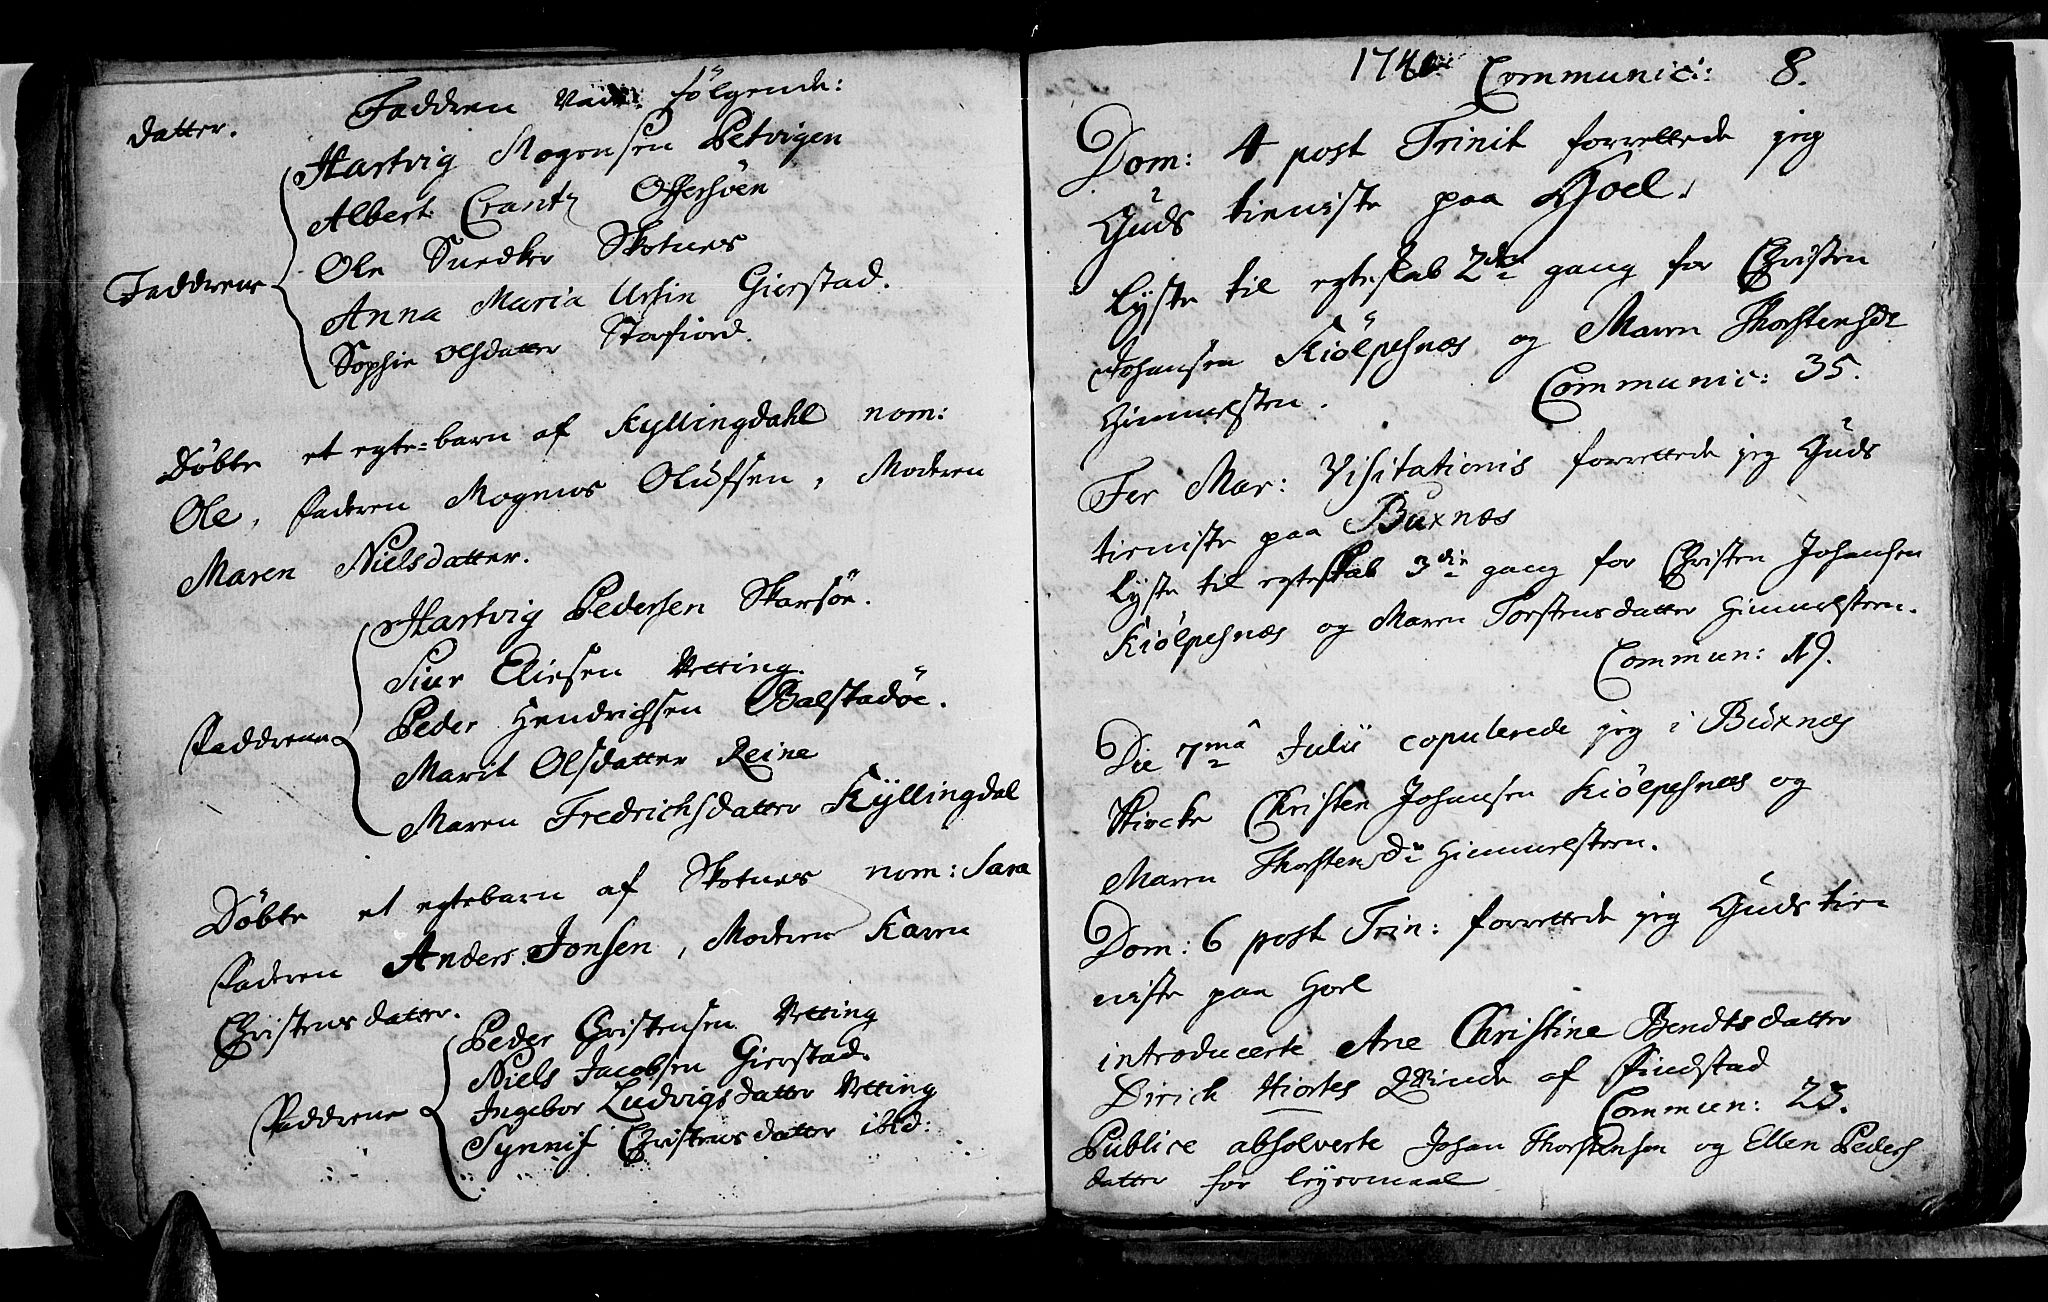 datter. Faddren vare følgende:
Hartvig Mogensen Petvigen
Albert Crantz Offersöen
Ole Snedker Skotnes
Faddrene
Anna Maria Ursin Gierstad.
Sophie Olsdatter Storfiord.
Døbte et egte-barn af Kyllingdahl nom:
Ole, Faderen Mogens Olufsen, Moderen
Maren Nielsdatter.
Hartvig Pedersen Skarsöe.
Siur Eliesen Vetting.
Peder Hendrichsen Balstadöe.
Faddrene
Marit Olsdatter Reine
Maren Fredrichsdatter Kyllingdal
Döbte et egtebarn af Skotnes nom: Sara
Faderen Anders Jonsen, Moderen Karen
Christensdatter.
Peder Christensen Vetting
Niels Jacobsen Gierstad.
Faddrene
Ingebor Ludvigsdatter Vetting
Synnif Christensdatter ibid:
Communici: 8.
Dom: 4 post Trinit forrettede jeg
Guds tieniste paa Hoel.
lyste til egteskab 2den gang for Christen
Johansen Kiölpesnæs og Maren Thorstensdr
Himmelsteen. Communic: 35.
Fer Mar: Visitationis forrettede jeg Guds
tieniste paa Buxnæs
lyste til egteskab 3die gang for Christen Johansen
Kiölpesnæs og Maren Torstensdatter Himmelsteen.
Commun: 19.
Die 7mâ Julii copulerede jeg i Buxnæs
Kircke Christen Johansen Kiölpesnæs og
Maren Thorstensdr Himmelsteen.
Dom: 6 post Trin: forrettede jeg Guds tie-
niste paa Hoel
introducerte Ane Christine Bendtsdatter
Dirich Hiortes Qvinde af Findstad
Commun: 23.
Publice absolverte Johan Thorstensen og Ellen Peders
datter for leyermaal